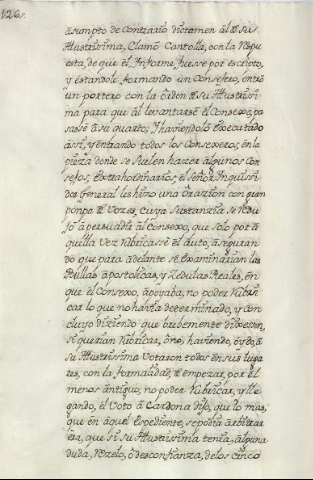 126.
asumpto de Contrario dictamen al de Su
Illustrissima, Clamò Cantolla, con la Respu
esta, de que el Informe, fuesse por escripto,
y estandole formando un Consejero, entrò
un portero con la orden de Su Illustrissi
ma para que al levantarse el Consexo, pa
sasse à su quarto; I haviendolo executado
assi, y entrando todos los Consexeros, en la
pieza donde se suelen hazer algunos Con
sejos, extrahordinarios, el Señor Inquisi
dor General les hizo una Orazion con gran
pompa de Vozes, cuya Sustanzia, se Redu
jo à persuadir al Consexo, que solo por a
quella Vez Rubricasse el Auto, asseguran
do que para adelante se examinarian las
Bullas apostolicas, y Zedulas Reales, en
que el Consexo, apoyaba, no poder Rubri
car lo que no havia determinado, y con
cluyò diziendo que brebemente dixessen,
si querian Rubricar, ò no; haviendo, oydo à
su Illustrissima Votaron todos en sus luga
res, con la formalidad, de empezar, por el
menos antiguo, no poder Rubricar, y lle
gando, el Voto à Cardona dijo, que lo mas,
que en aquel Expediente, se podia arbitrar
era, que si su Illustrissima tenia, alguna
duda, Rezelo, ò desconfianza, de los cinco